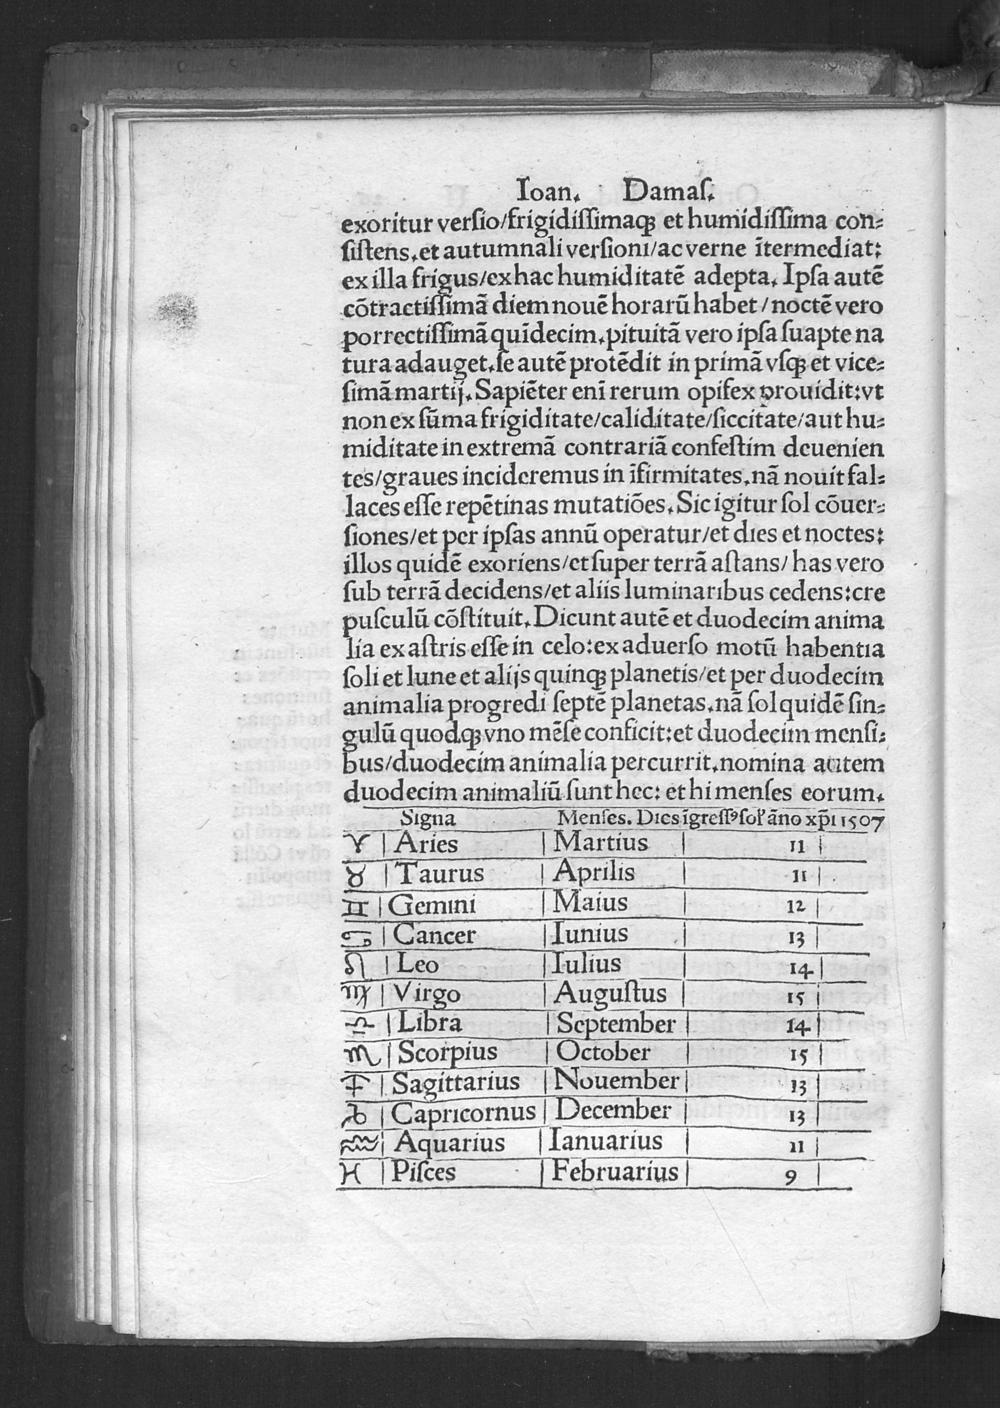 Ioan. Damaſ.
exoritur verſio/frigidiſſimaqꝫ et humidiſſima con⸗
ſiſtens.et autumnali verſioni/ac verne ĩtermediat:
ex illa frigus/ex hac humiditatẽ adepta. Ipſa autẽ
cõtractiſſimã diem nouẽ horarũ habet / noctẽ vero
porrectiſſimã quĩdecim.pituitã vero ipſa ſuapte na
tura adauget.ſe autẽ protẽdit in primã vſqꝫ et vice⸗
ſimã martij. Sapiẽter enĩ rerum opifex ꝓuidit:vt
non ex ſũma frigiditate/caliditate/ſiccitate/aut hu⸗
miditate in extremã contrariã confeſtim deuenien
tes/graues incideremus in ĩfirmitates.nã nouit fal⸗
laces eſſe repẽtinas mutatiões. Sic igitur ſol cõuer⸗
ſiones/et per ipſas annũ operatur/et dies et noctes:
illos quidẽ exoriens/et ſuper terrã aſtans/ has vero
ſub terrã decidens/et aliis luminaribus cedens:cre
puſculũ cõſtituit. Dicunt autẽ et duodecim anima
lia ex aſtris eſſe in celo:ex aduerſo motũ habentia
ſoli et lune et alijs quinqꝫ planetis/et per duodecim
animalia progredi ſeptẽ planetas.nã ſol quidẽ ſin⸗
gulũ quodqꝫ vno mẽſe conficit:et duodecim menſi⸗
bus/duodecim animalia percurrit.nomina autem
duodecim animaliũ ſunt hec: et hi menſes eorum.
Signa Menſes. Dies ĩgreſſꝰ ſol' ãno xp̃i 1507
♈ | Aries | Martius | 11 |
♉ | Taurus | Aprilis | 11 |
♊ | Gemini | Maius | 12 |
♋ | Cancer | Iunius | 13 |
♌ | Leo | Iulius | 14 |
♍ | Virgo | Auguſtus | 15 |
♎ | Libra | September | 14 |
♏ | Scorpius | October | 15 |
♐ | Sagittarius | Nouember | 13 |
♑ | Capricornus | December | 13 |
♒ | Aquarius | Ianuarius | 11 |
♓ | Piſces | Februarius | 9 |